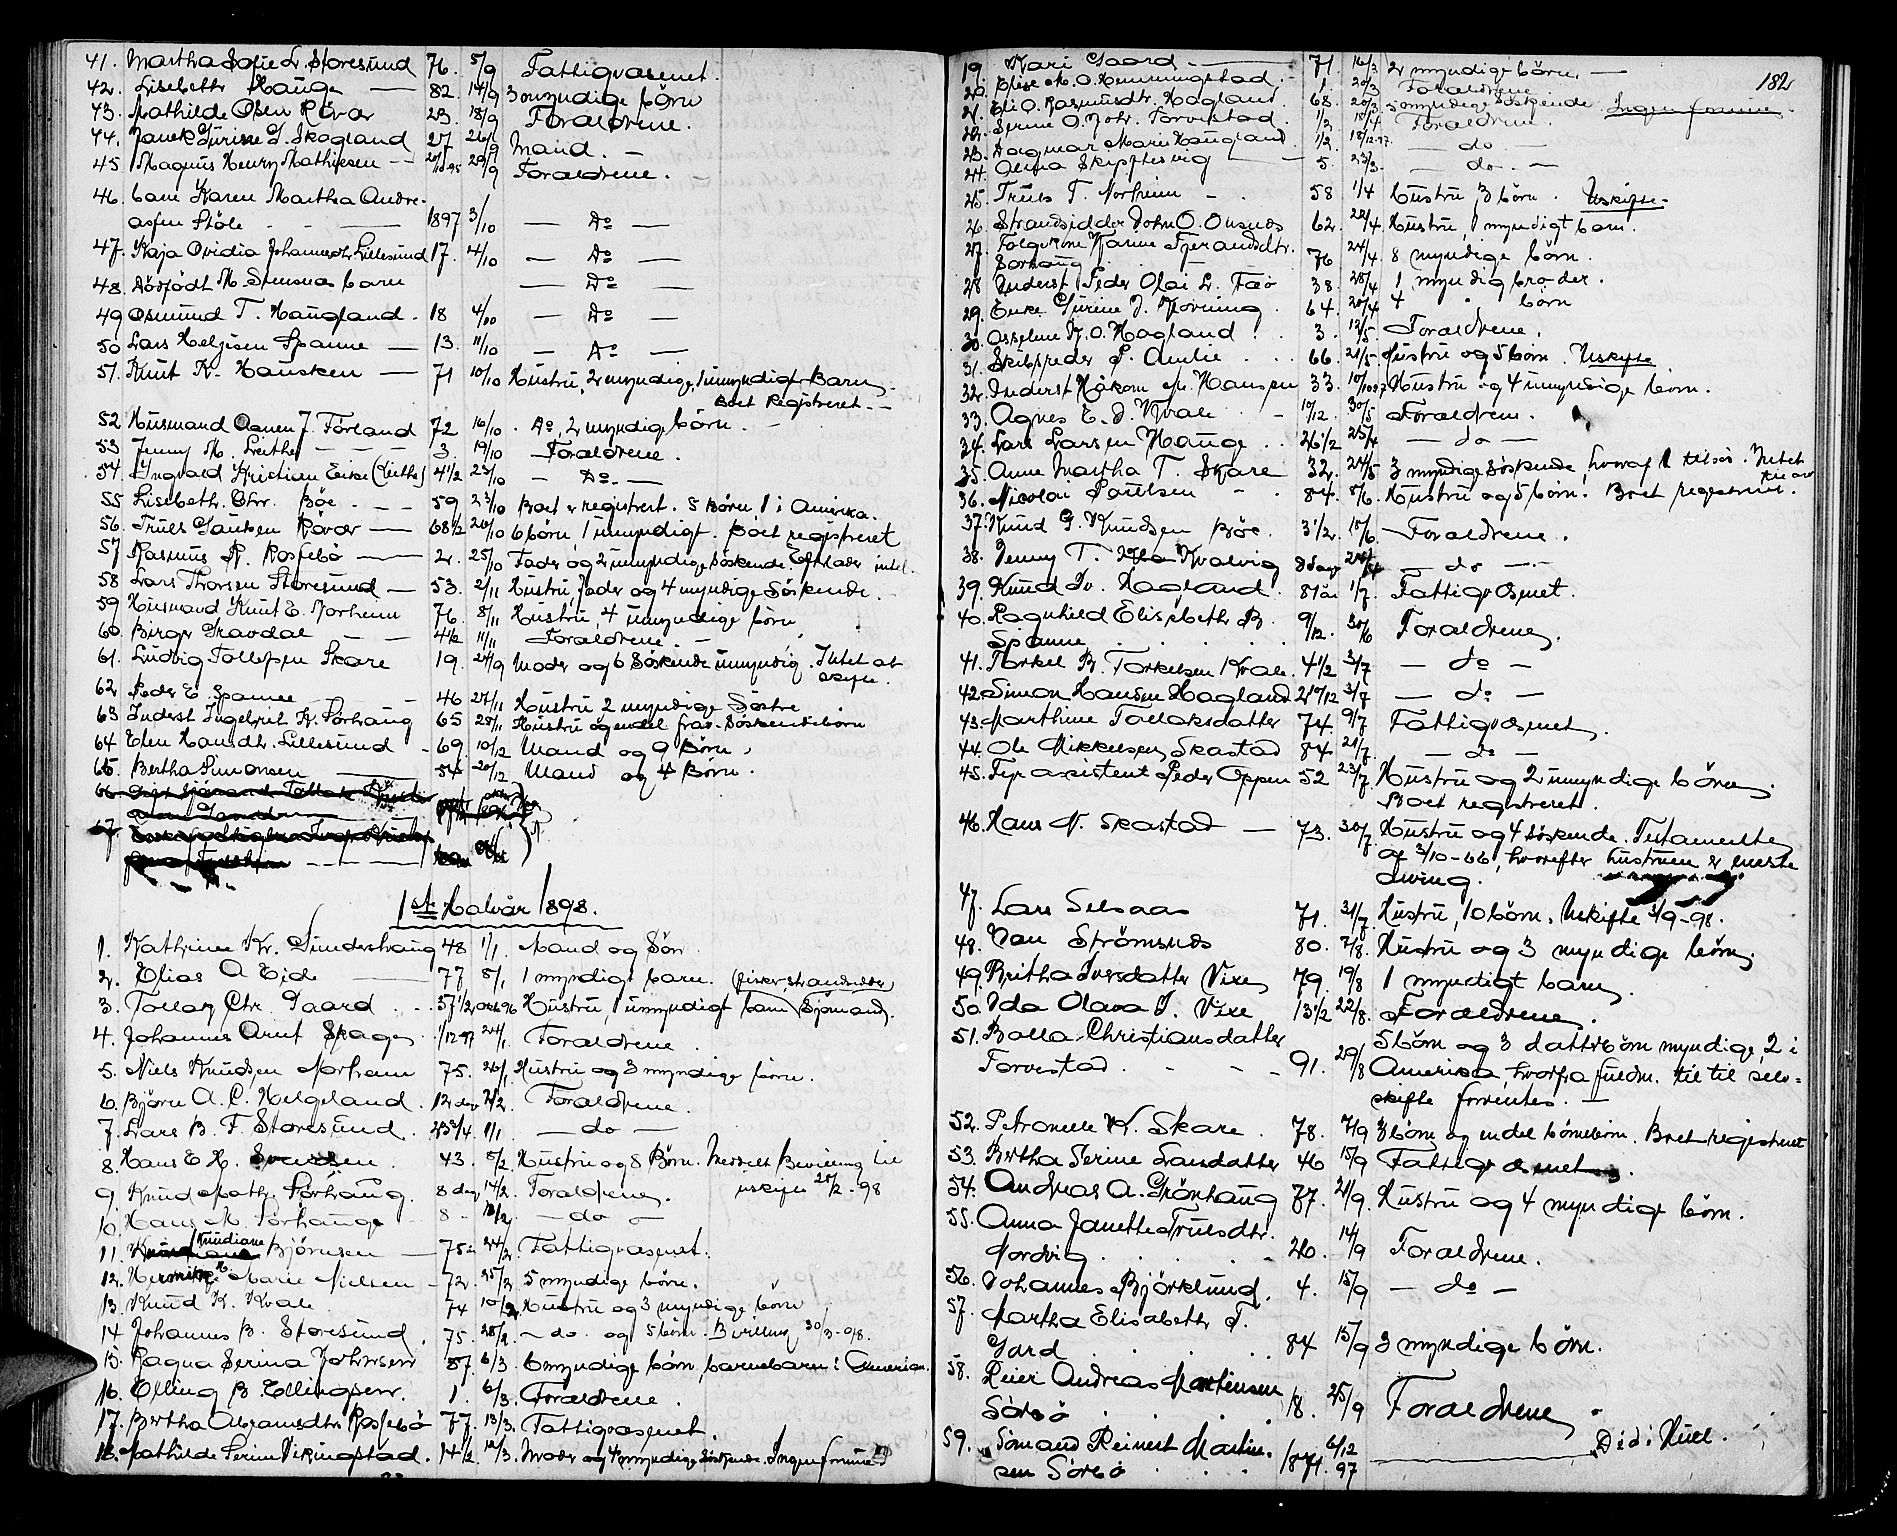 41. Martha Sofie L. Storesund 76. 5/9 Fattigvæsenet.
42. Lisebeth Hauge — 82 14/9 3 umyndige börn
43. Mathilde Olsen Rövær 23. 18/9 Forældrene.
44. Skogland 27 26/9 Mand. —
45 Magnus Henry Mathisen — 29/9 Forældrene. —
46. barn Karen Martha Andre-
asen Stöle 1897 3/10 — Do —
47. Kaja Ovidia Johannesdtr Lillesund 17. 4/10 — Do —
48. Dödfödt M. Stensnæs barn — Do —
49 Osmund T. Haugland. 18 4/10 — Do —
50 Lars Helgesen Spanne — 13. 11/10 — Do —
51. Knut K. Hausken — 71 10/10 Hustru, 2 myndige, 1 umyndigt Barn.
Boet Registreret. —
52 Husmand Aanen J. Förland 72 16/10. Do, 2 myndige börn. —
53 Jenny M. Leithe — 3. 19/10 Forældrene.
54. Ingvald Kristian Eeike (Leithe) 4 1/2 23/10 — Do. —
55 Lisebeth Chr. Böe. — 59 23/10 Boet er registrert. 5 Börn 1 i Amerika.
56. Truls Gautsen Rövær — 68 1/2 26/10 6 börn, 1 umyndigt. Boet registreret
57 Rasmus R. Rossebö — 2. 25/10 Fader og 2 umyndige Söskende. Efterlader intet.
58 Lars Thorsen Storesund — 53. 2/11 Hustru, fader og 4 myndige Söskende.
59 Husmand Knut E. Norheim 76. 8/11 Hustru, 4 umyndige börn
60. Birger Gravdal — 4 1/2 11/11 Forældrene. —
61. Ludvig Tollefsen Skare 19. 24/9 Moder og 6 Söskende umyndig. Intet at
skifte.
62 Peder E. Spanne — 46 27/11 Hustru 2 myndige Söstre.
63 Inderst Ingebrigt K. Sörhaug 65 28/11 Hustru og endel fras. Söskendebörn
64 Elen Hansdtr. Lillesund — 69. 10/12 Mand og 9 Börn.
65. Bertha Simonsen — 54 20/12 Mand og 4 Börn.
66
67
1ste Halvår 1898.
1. Kathrine Kr. Sundershaug 48 1/1. Mand og Sön
2. Elias A. Eide — 77 5/1 1 myndigt barn. (fisker, strandsidder
3. Tollag Chr. Gaard. 57 1/2 Hustru, 1 umyndigt barn (Sjömand)
4. Johannes Arnt Skage 1/12 97 24/1. Forældrene.
5. Niels Knudsen Norheim 75. 26/1 Hustru og 3 myndige börn.
6. Björn A. C. Helgeland. 12 dag 2/2. Forældrene.
7. Lars B. F. Storesund. 23 3/4 1/1. — do —
8. Hans E. H. 43. 5/2 Hustru og 8 Börn. Meddelt Bevilling til
9. Knud Sörhaug. 8 dag 14/2. Forældrene. uskifte 25/2-98
10. Hans M. Sörhauge 8 — 13/2 — do —
11. Knudiane Björnsen — 75 24/2 Fattigvæsenet.
12. Marie Nielsen — 72. 25/2 5 myndige börn.
13. Knud K. Kvale 74 10/2 Hustru og 3 myndige börn
14 Johannes B. Storesund. 75. 28/2 — do. og 5 börn. Bevilling 30/3-98.
15. Ragna Serina Johnsen 87. 6/3. 6 myndige börn, barnebarn i Amerika.
16. Elling B. Ellingsen. 1 6/3. Forældrene.
17. Bertha Abramsdtr. Rossebö 77. 13/3. Fattigvæsenet.
18. Mathilde Serine Vikingstad. 14 1/2 12/3. Moder og 4 myndige Söskende. Ingen formue
182
19. Kari Gaard — 71. 16/3 2 myndige börn. —
20. Else M. O. Henningstad. 1. 20/3 Forældrene.
21. Eli O. Rasmusdtr. Hagland 68. 20/3 5 myndige Söskende. Ingen formue.
22. Serine O. Johs. Torvestad. 1/2 Forældrene.
23. Dagmar Marie Haugland 1/2 18/12.97. — do —
24. Anna Skiftesvig — 5. 23/3. — do. —
25. Truls T. Norheim — 58 1/4 Hustru 3 börn. Uskifte.
26 Strandsidder John O. Onsnes 62 22/4 Hustru, 1 myndigt barn.
27. Folgekone Hanne Fjerandsdtr.
Sörhaug 76 24/4 8 myndige börn.
28 Inderst Peder Olai L. Feö 38. 28/4 1 myndig broder.
29. Enke Gurine J. Kvning. 64. 20/4 4 " börn
30. Asseline K. O. Hagland 3. 12/5. Forældrene.
31. Skibsreder P. Amlie 66. 21/5. Hustru og 5 börn. Uskifte
32. Inderst Håkon M. Hansen 33. Hustru og 4 umyndige börn.
33. Agnes E. J. Kvale 10/12. 30/5 Forældrene.
34. Lars Larsen Hauge 26 1/2 25/4 — do —
35. Anne Martha T. Skare 32. 24/5 3 myndige söskende, hvoraf 1 tilsös. Intet
36. Nicolai Poulsen 84. 5/6. Hustru og 5 börn. Boet registreret.
37. Knud G. Knudsen Böe. 3 1/2. 10/6. Forældrene.
38. Jenny T. Kvalvig 8 dage — do —
39. Knud Iv. Hagland. 87 år 1/7. Fattigvæsenet.
40. Ragnhild Elisebeth B.
Spanne 9/12. 30/6 Forældrene.
41. Torkel B. Torkelsen Kvale. 4 1/2 3/7 — do —
42. Simon Hansen Hagland 2 10/12 3/7 — do —
43. Marthine Tollaksdatter 74. 9/7 Fattigvæsenet.
44. Ole Mikkelsen Skastad 84 21/7. — do —
45. Fyrassistent Peder Oppen 52 23/7. Hustru og 2 umyndige börn
Boet registreret.
46. Hans N. Skastad — 73. 30/7. Hustru og 4 söskende. Testamente
af 3/10-66, hvorefter hustruen er eneste
arving.
47. Lars Selsaas 71. 31/7. Hustru, 10 börn. Uskifte 3/9-98.
48. Dan Strömsnes 80. 7/8. Hustru og 3 myndige börn.
49. Britha Iversdatter Vixe 79. 19/8 1 myndigt barn.
50. Ida Olava J. Vixe 13 1/2 22/8. Forældrene.
51. Bolla Christiansdatter
Torvestad. 91. 29/8 5 börn og 3 datterbörn myndige, 2 i
Amerika, hvorfra fuldm. til til selv-
skifte forventes. —
52. Petronelle K. Skare. 78. 7/9 3 börn og endel börnebörn. Boet registreret
53. Bertha Serine Larsdatter 46 15/9 Fattigvæsenet.
54. Andreas A. Grönhaug 77. 21/9. Hustru og 4 myndige börn.
55. Anna Janette Trulsdtr.
Nordvig. 20. 14/9 Forældrene.
56. Johannes Björklund. 4. 15/9 — do —
57. Martha Elisabeth T.
Gard 84 15/9 3 myndige börn.
58. Reier Andreas Mortensen
Sörbö 18. 25/9 Forældrene.
59. Sömand Reinert Martin-
sen Sörbö 1871. 6/12 97 — Död i Hull.